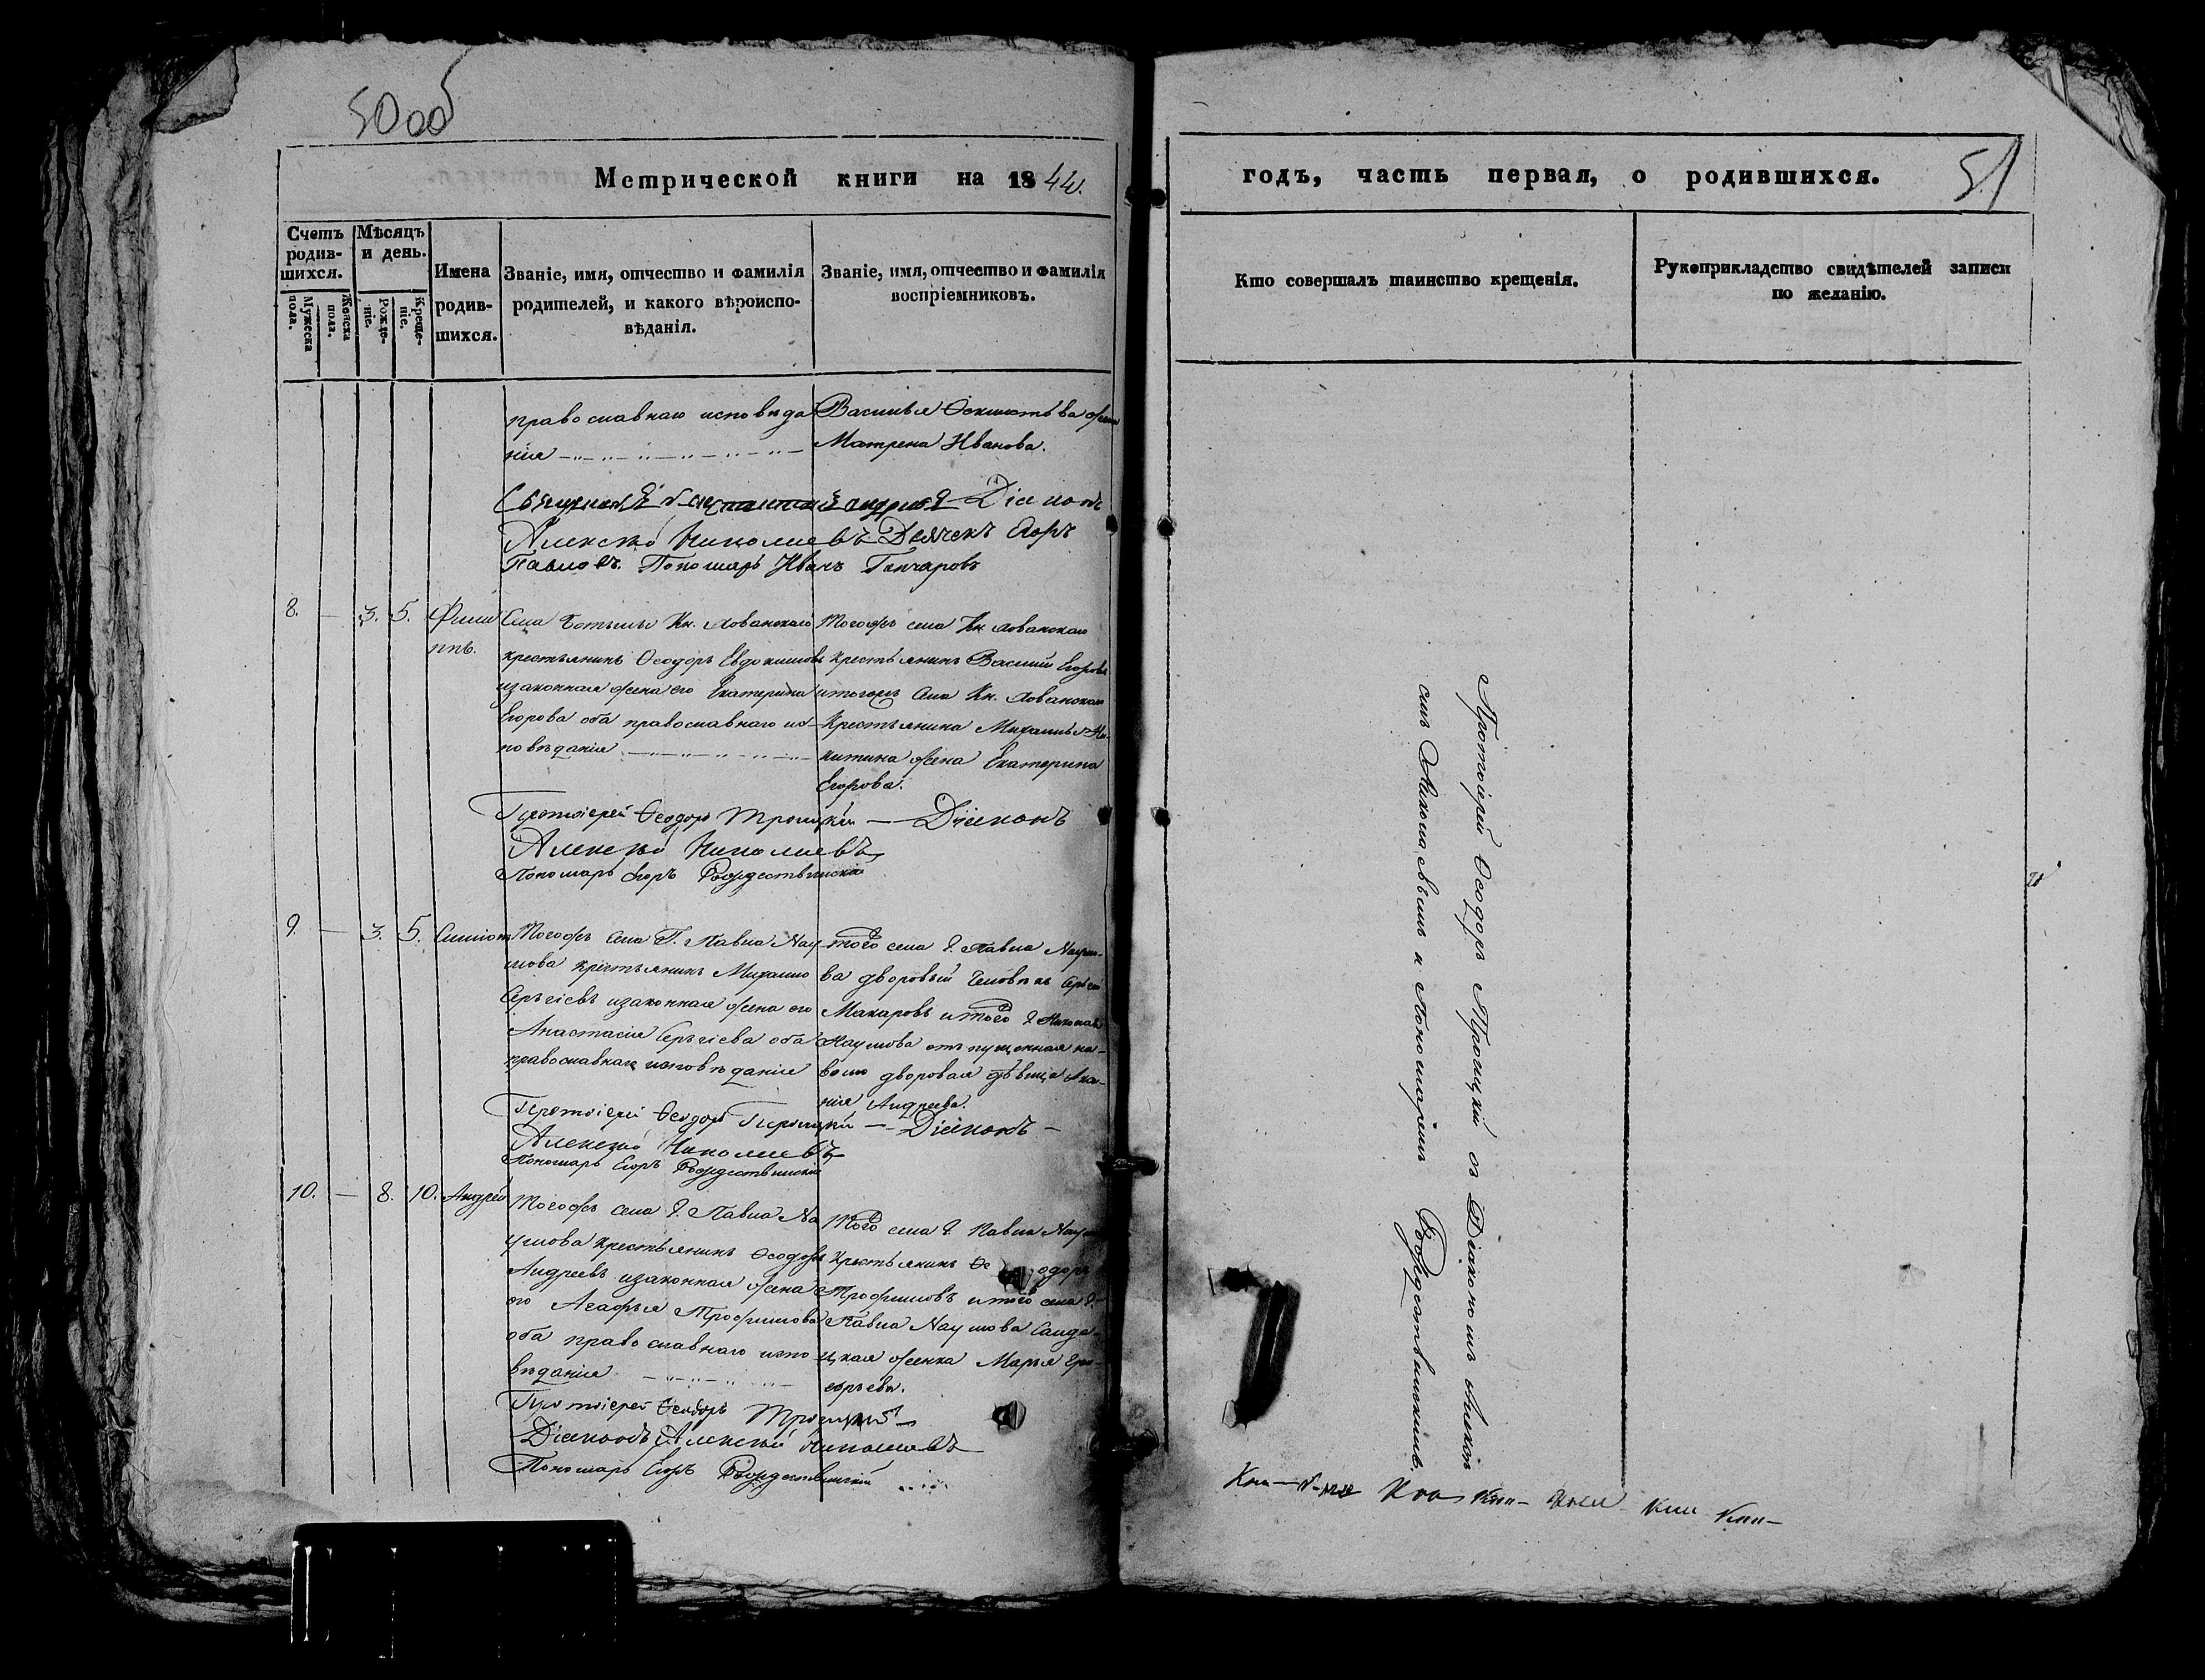 50об
Метрической книги на 1844.
годъ, часть первая, о родившихся.
51
Счетъ родив-
шихся.
Мужеска пола.
Женска пола.
Мѣсяцъ
и день.
Рожде-
ніе.
Креще-
ніе.
Имена
родив-
шихся.
Званіе, имя, отчество и фамилія
родителей, и какого вѣроиспо-
вѣданія.
Званіе, имя, отчество и фамилія
воспріемниковъ.
Кто совершалъ таинство крещенія.
Рукоприкладство свидѣтелей записи
по желанію.
православнаго исповѣда
нія
Василья жена
Матрена Иванова.
Діаконъ
Алексѣй Николаевъ Дьячекъ Егоръ
Павловъ. Пономарь Иванъ Гончаровъ
8. — 3. 5. Фили
ппъ.
Села Кн. Хованскаго
крестьянинъ Ѳеодоръ Евдокимовъ
изаконная жена его Екатерина
Егорова оба православнаго ис-
повѣданія
Тогожъ села Кн. Хованскаго
крестьянинъ Василій Егоровъ
итогожъ села Кн. Хованскаго
крестьянина Михаила Ни-
китина жена Екатерина
Егорова.
Протоіерей Ѳеодоръ Троицкій — Діаконъ
Алексѣй Николаевъ
Пономарь Егоръ Рождественскій
9. — 3. 5. Симіонъ
Тогожъ села Г. Павла Нау-
мова крестьянинъ Михаило
Сергіевъ изаконная жена его
Анастасія Сергіева оба
православнаго исповѣданія
того села Г. Павла Наумо-
ва дворовый человѣкъ Сергѣй
Макаровъ итого Г. Николая
Наумова отпущенная на
волю дворовая дѣвица
Андреева.
Протоіерей Ѳеодоръ Троицкій — Діаконъ —
Алексѣй Николаевъ
Пономарь Егоръ Рождественскій
10. — 8. 10. Андрей
Тогожъ села Г. Павла На
умова крестьянинъ Ѳеодоръ
Андреевъ изаконная жена
его Агафья Трофимова
оба православнаго испо
вѣданія
Того села Г. Павла Наумова
крестьянинъ Ѳеодоръ
Трофимовъ итого села Г.
Павла Наумова Салда-
цкая женка Марья

Протоіерей Ѳеодоръ Троицкій
Діаконъ Алексѣй Николаевъ
Пономарь Егоръ Рождественскій
Протоіерей Ѳеодоръ Троицкій съ Діакономъ Алексѣ
емъ Николаевымъ и Пономаремъ Рождественскимъ.